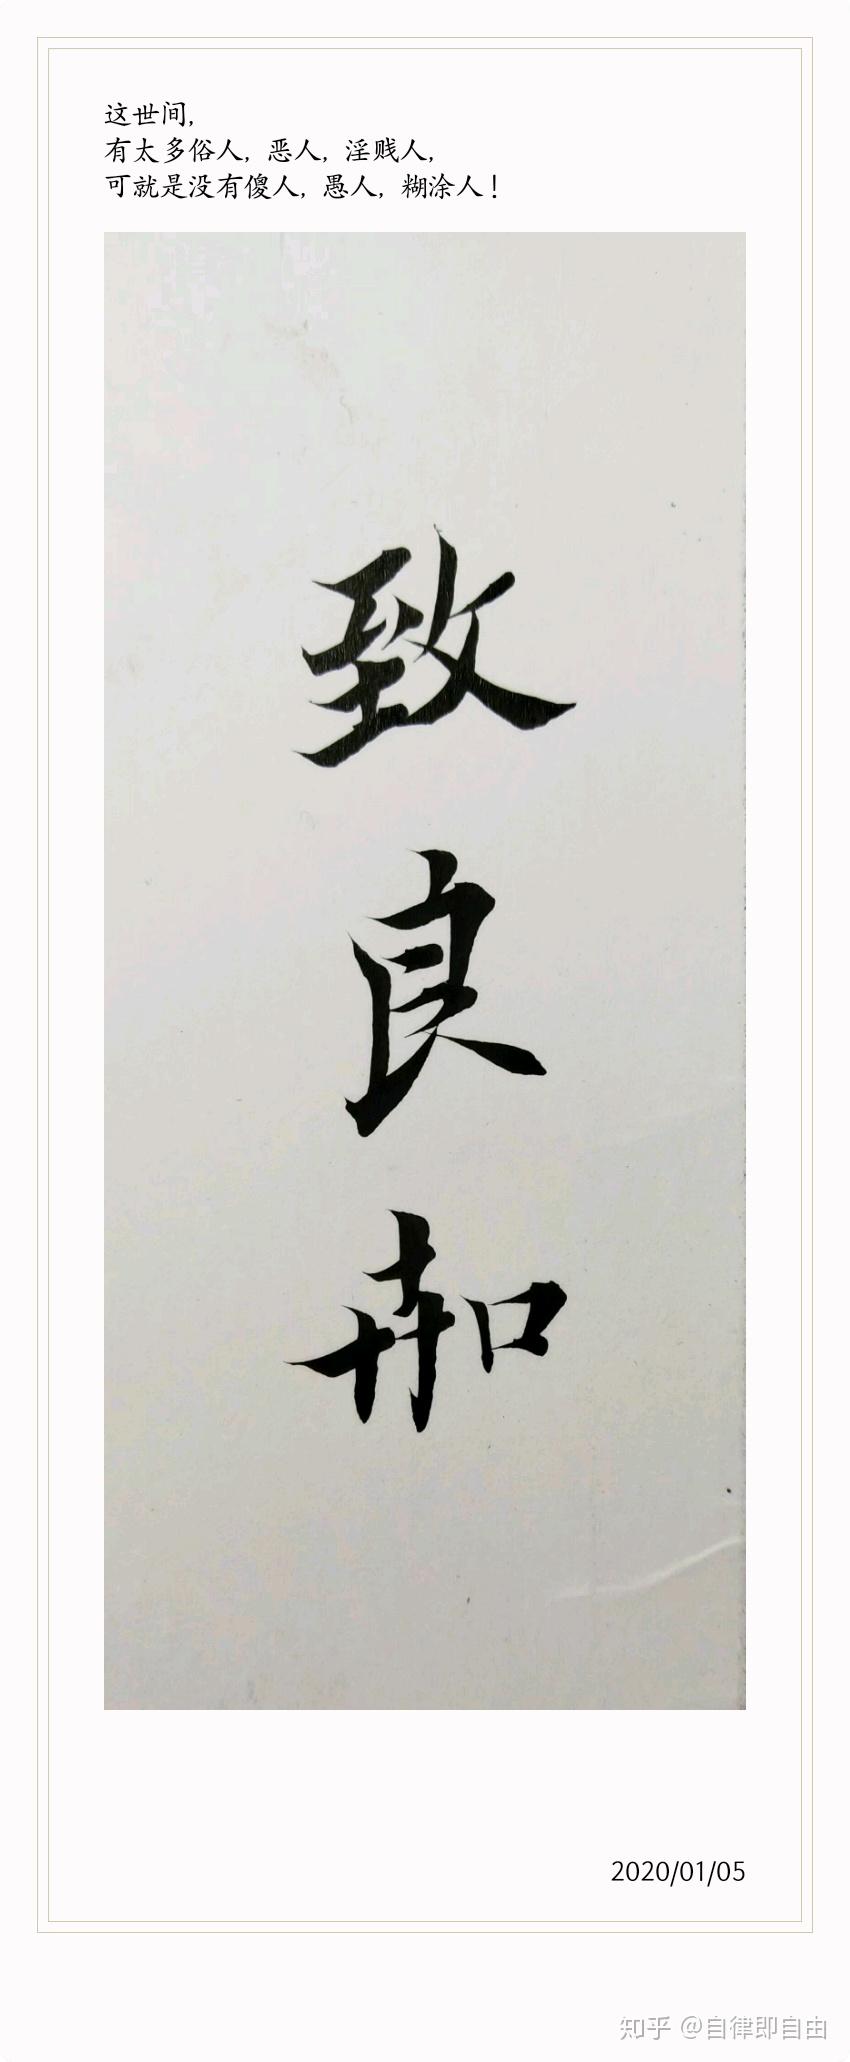 这世间,
有太多俗人, 恶人, 淫贱人,
可就是没有傻人, 愚人, 糊涂人!
致
良
知
2020/01/05
知乎 @自律即自由